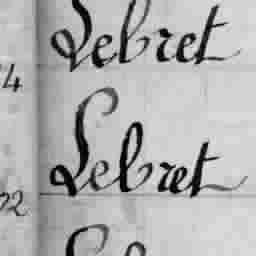 Lebret
4
Lebret
22